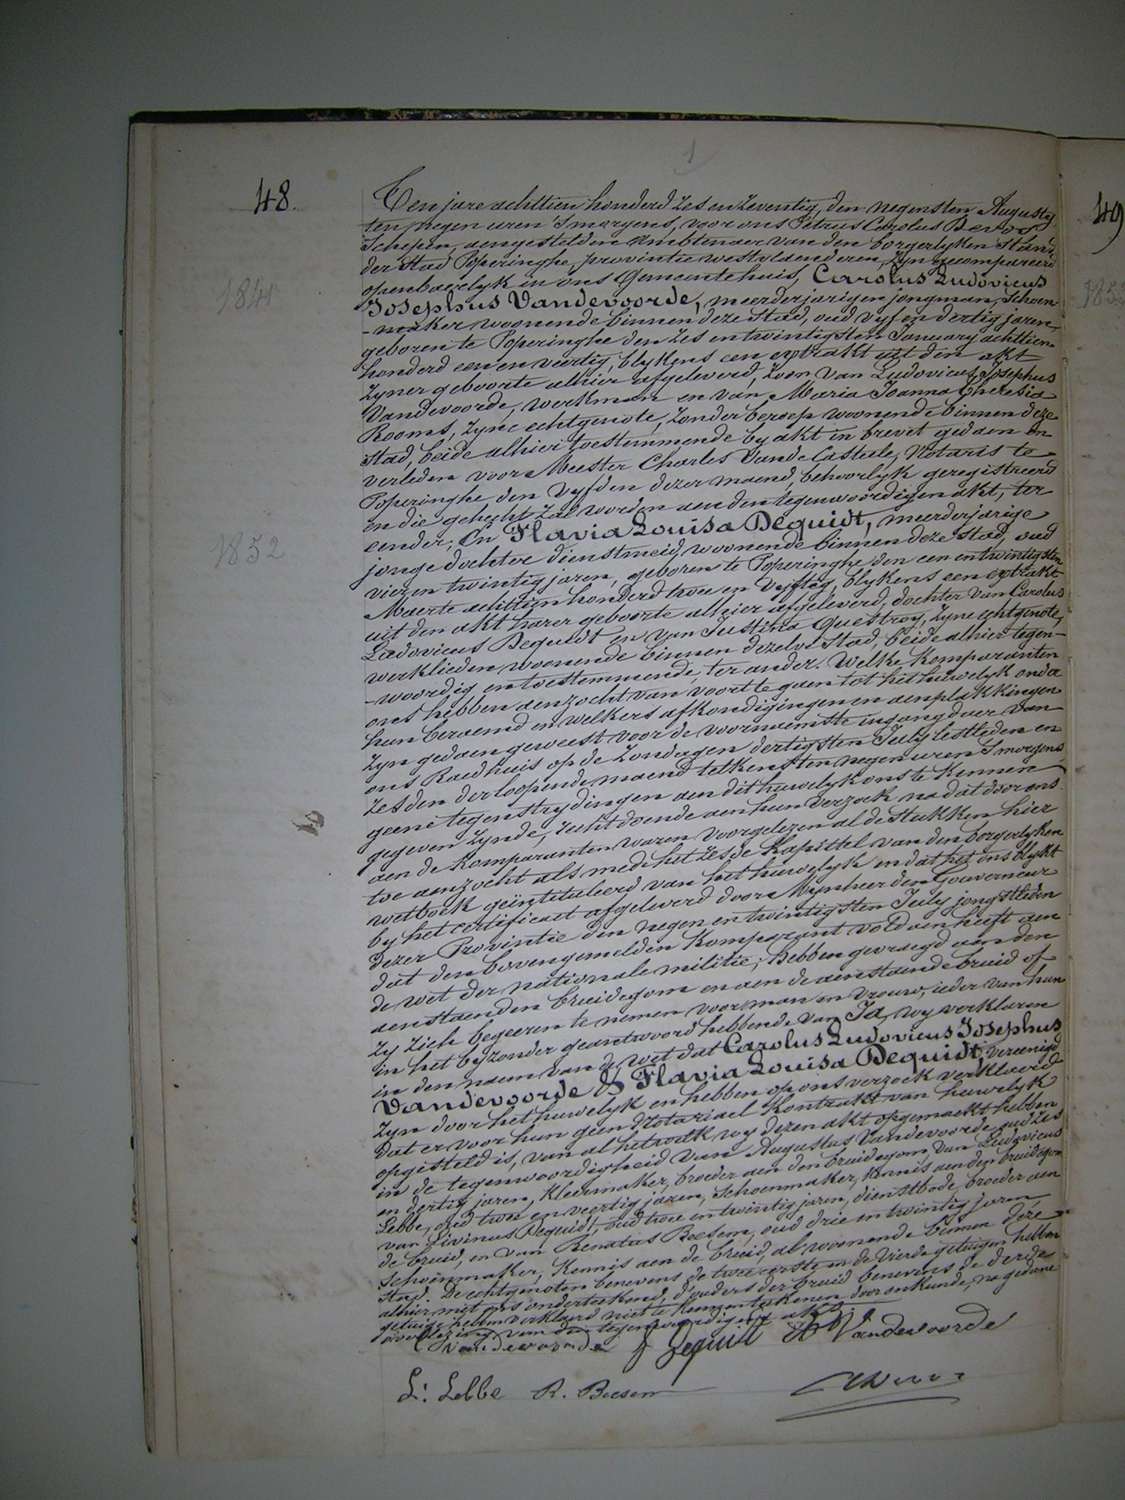 1
48.
Ten jare achttien honderd zes en zeventig, den negensten Augusty
ten negen uren 'Smorgens, voor ons Petrus Carolus Devos
Schepen, aengestelden Ambtenaer van den borgerlyken stand
der Stad Poperinghe, provintie westvlaenderen, Zyn gecompareerd
openbaerlyk in ons Gemeentehuis, Carolus Ludovicus
1841
Josephus Vandevoorde, meerderjarigen jongman, schoen-
-maker woonende binnen deze Stad, oud vyf en dertig jaren,
geboren te Poperinghe den zes en twintigsten January achttien
honderd een en veertig, blykens een extrakt uit den akt
Zyner geboorte alhier afgeleverd, Zoon van Ludovicus Josephus
Vandevoorde, werkman en van Maria Joanna Theresia
Rooms, Zyne echtgenote, Zonder beroep woonende binnen deze
Stad, beide alhier toestemmende by akt in brevet gedaen en
verleden voor Meester Charles Vande Casteele, Notaris te
Poperinghe den Vyfden dezer maend, behoorlyk geregistreerd
en die gehecht Zal worden aen den tegenwoordigen akt, ter
eender; En Flavia Louisa Dequidt, meerderjarige
1852
jonge dochter dienstmeid, woonende binnen deze Stad, oud
vier en twintig jaren, geboren te Poperinghe den een en twintigsten
Maerte achttien honderd twee en vyftig, blykens een extrakt
uit den akt harer geboorte alhier afgeleverd, dochter van Carolus
Ludovicus Dequidt en van Justina Questroy, Zyne echtgenote,
werklieden woonende binnen dezelve Stad, beide alhier tegen-
-woordig en toestemmende, ter ander. Welke Komparanten
ons hebben aenzocht van voort te gaen tot het huwelyk onder
hun beraemd en welkers afkondigingen en aenplakkingen
Zyn gedaen geweest voor de voornaemste ingang door van
ons Raedhuis op de Zondagen dertigsten July lestleden en
Zesden der loopende maend telkens ten negen uren 'Smorgens
geene tegenstrydingen aen dit huwelyk ons te Kennen
gegeven Zynde, recht doende aen hun verzoek, na dat door ons
aen de Komparanten waren voorgelezen al de stukken hier
toe aenzocht als mede het Zesde Kapittel van den borgerlyken
wetboek geïntituleerd van het huwelyk en dat het ons blykt
by het certificaet afgeleverd door Mynheer den Gouverneur
dezer Provintie den negen en twintigsten July jongstleden
dat den bovengemelden Komparant voldaen heeft aen
de wet der nationale militie; Hebben gevraegd aen den
aenstaenden bruidegom en aen de aenstaende bruid of
Zy Zich begeeren te nemen voor man en vrouw; ieder van hun
in het byzonder geantwoord hebbende van Ja, wy verklaren
in den naem van de wet dat Carolus Ludovicus Josephus
Vandevoorde & Flavia Louisa Dequidt, vereenigd
Zyn door het huwelyk en hebben op ons verzoek verklaerd
dat er voor hun geen Notariael Kontrakt van huwelyk
opgesteld is, van al hetwelk wy dezen akt opgemaekt hebben
in de tegenwoordigheid van Augustus Vandevoorde oud Zes
en dertig jaren, Kleermaker, broeder aen den bruidegom, van Ludovicus
Lebbe, oud twee en veertig jaren, Schoenmaker, Kennis aen den bruidegom
van Livinus Dequidt, oud twee en twintig jaren, dienstbode, broeder aen
de bruid, en van Renatus Beesem, oud drie en twintig jaren,
Schoenmaker, Kennis aen de bruid, al woonende binnen deze
Stad. De echtgenoten benevens de twee eerste en de Vierde getuigen hebben
alhier met ons onderteekend, d'ouders der bruid benevens de derde
getuige hebben verklaerd niet te Konnen teekenen door onkunde, na gedane
voorlezing van den tegenwoordigen akt.
C Vandevoorde F Dequidt A Vandevoorde
L: Lebbe R. Beesem
49
1852